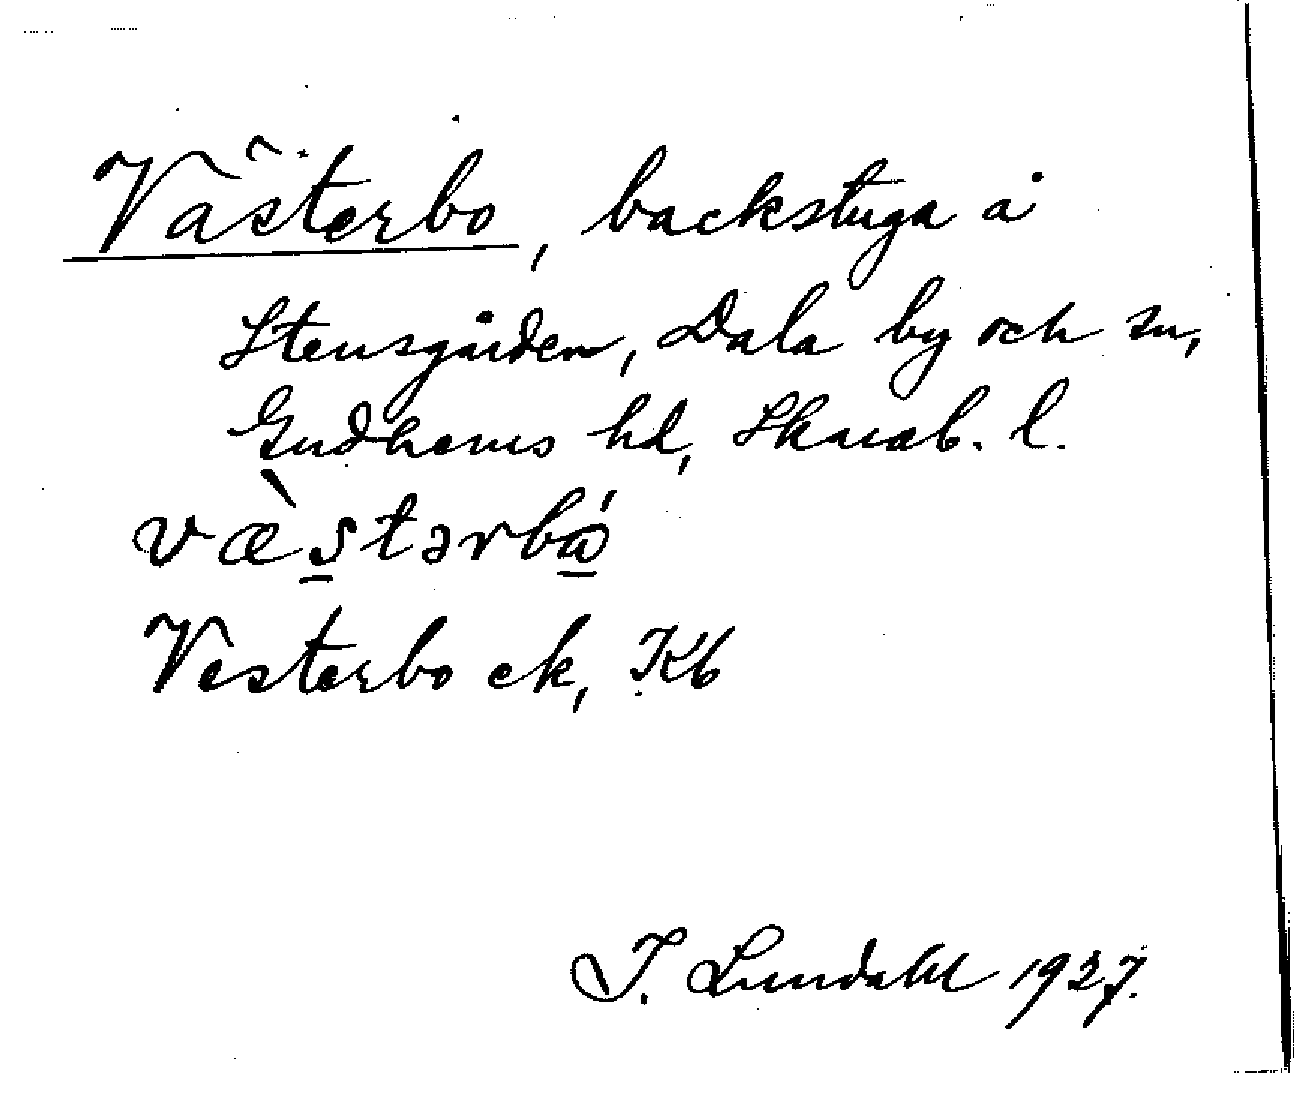 Västerbo, backstuga å
Stensgården, Dala by och sn,
Gudhems hd, Skarab. l.
væ̀stərbá
Vesterbo ek, Kb
I. Lundahl 1927.